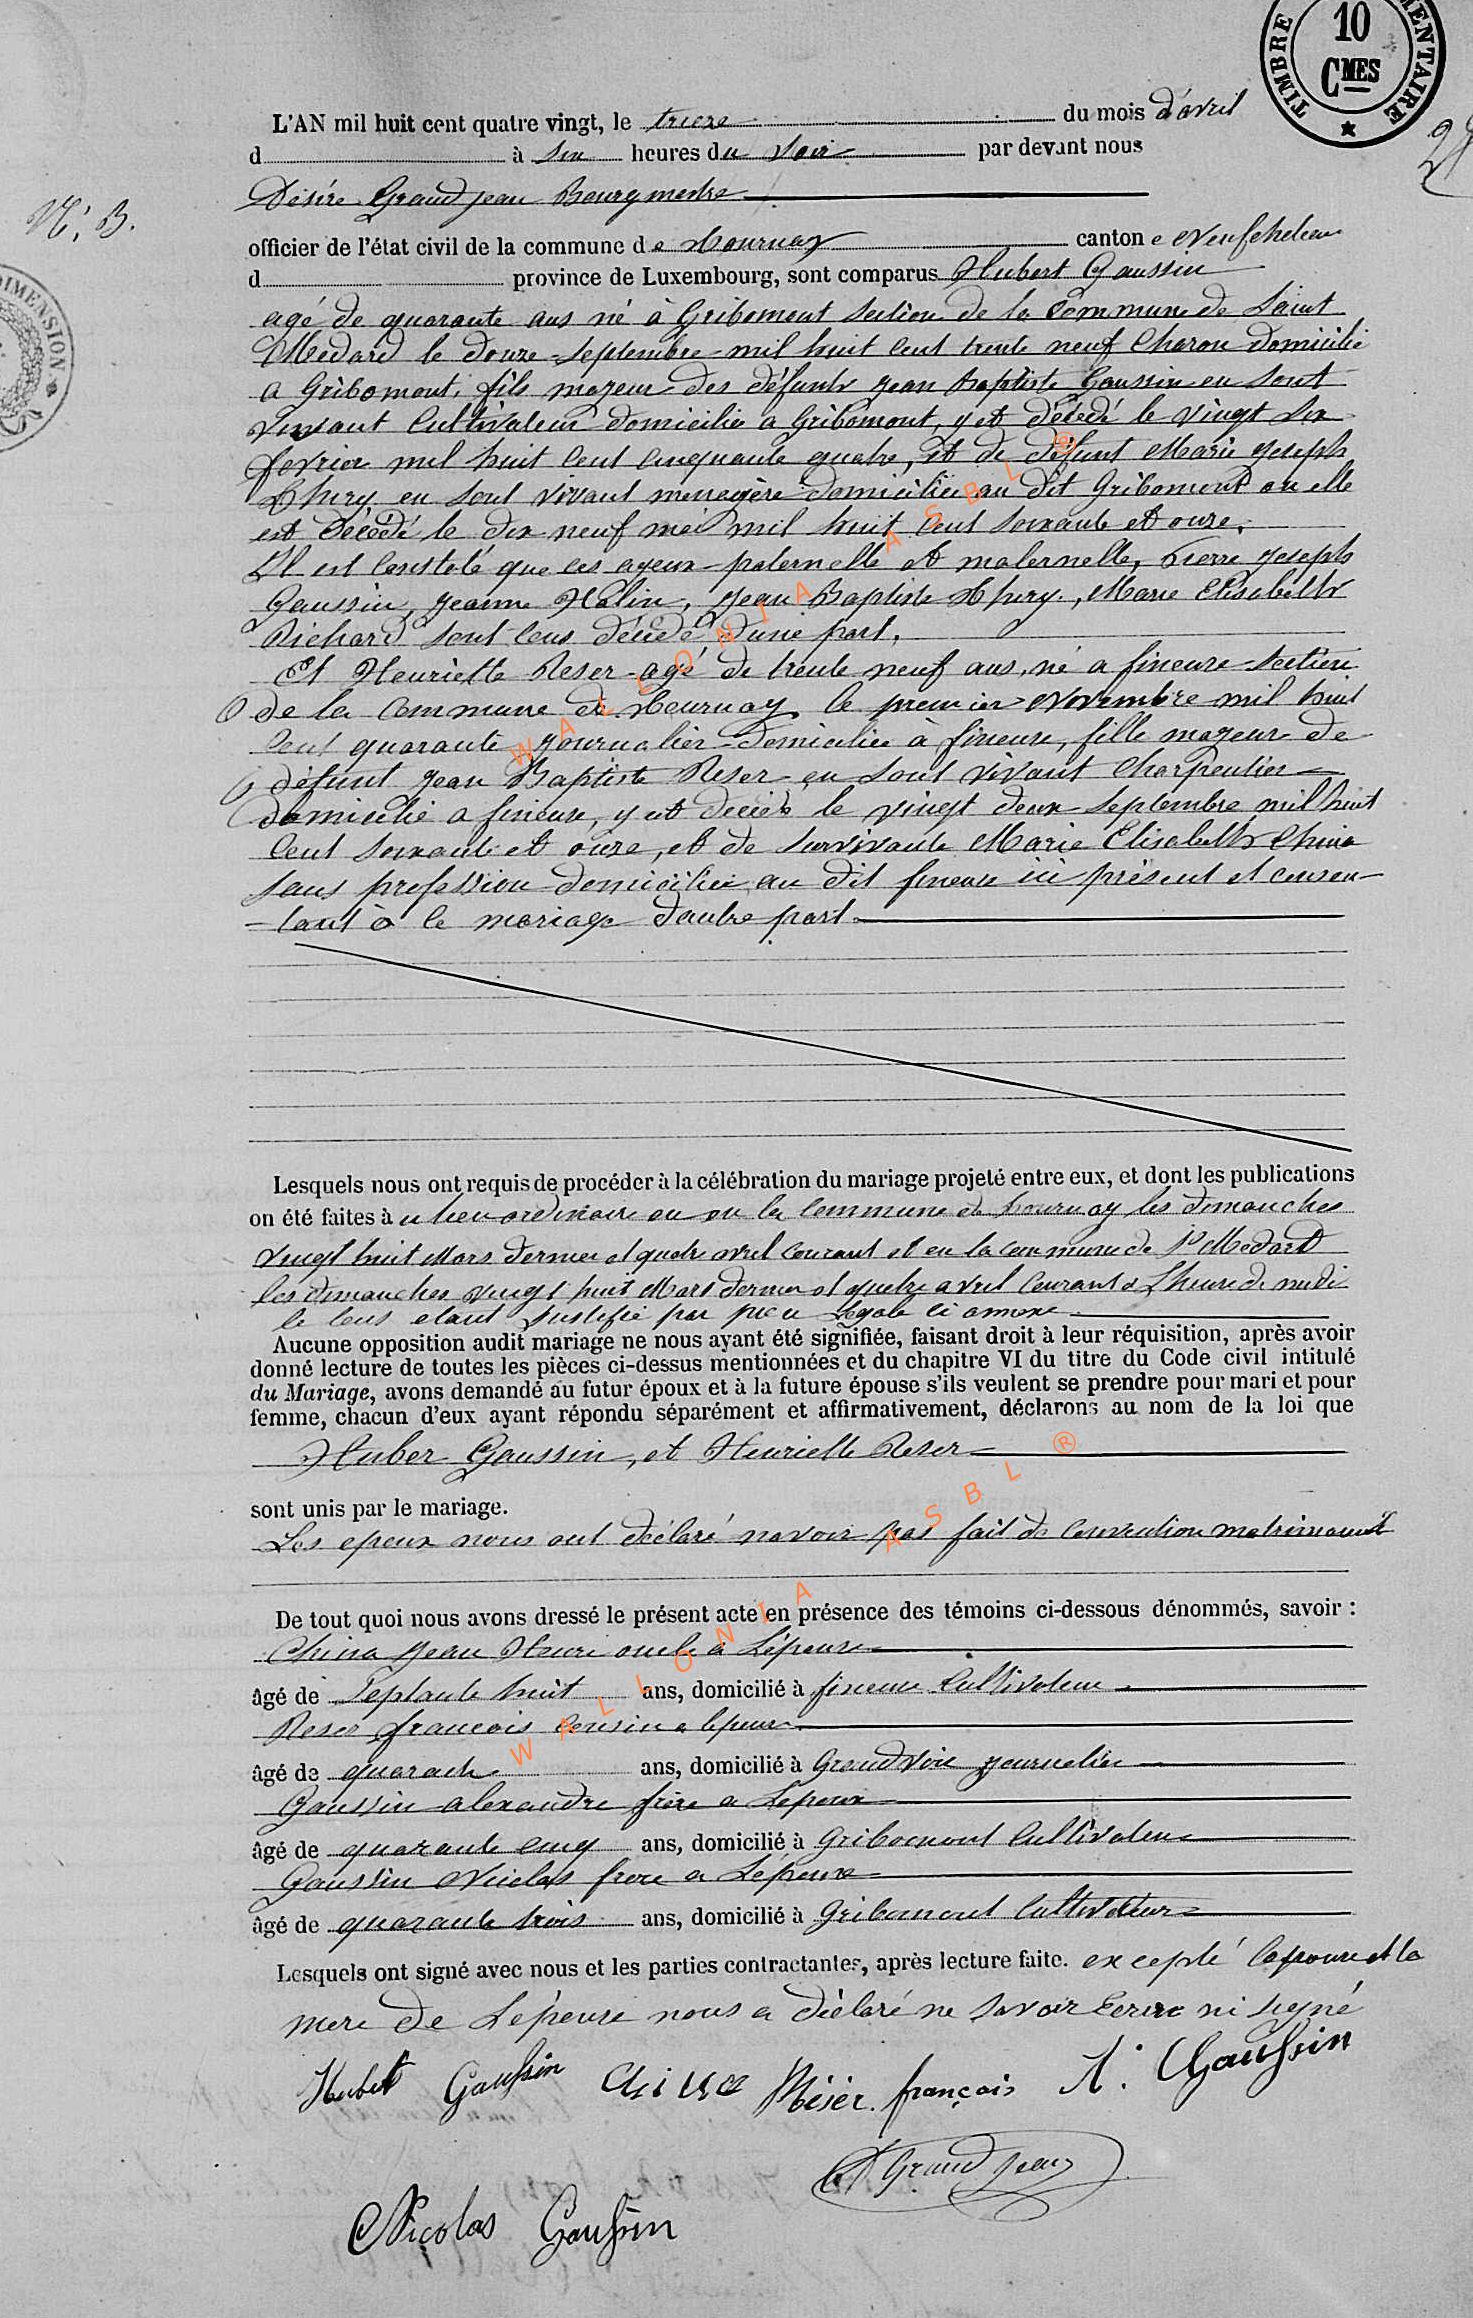 TIMBRE 10 CMES
DIMENSION
L'AN mil huit cent quatre vingt, le treize du mois d'avril
d à six heures du soir par devant nous
Désiré Grandjean Bourgmestre
N. B.
officier de l'état civil de la commune de Tournay canton e Neufchateau
d province de Luxembourg, sont comparus Hubert Gaussin
agé de quarante ans né à Gribomont section de la Commune de Saint
Medard le douze septembre mil huit cent trente neuf Charon domicilié
a Gribomont, fils majeur des défunts jean baptiste Gaussin en sont
vivant Cultivateur domicilié a Gribomont, y est décédé le vingt six
fevrier mil huit cent cinquante quatre, et de défunt Marie joseph
Thiry en sont vivant menagère domiciliée au dit Gribomont ou elle
est décédé le dix neuf mai mil huit cent soixante et onze.
Il est constaté que ces ayeux paternelle et maternelle, Pierre joseph
Gaussin, jeanne Halin, jean Baptiste Thiry, Marie Elisabeth
Richard sont tous décédé d'une part.
Et Henriette Reser agé de trente neuf ans, né a fineuse section
de la Commune de Tournay le premier Novembre mil huit
cent quarante journalière domiciliée à fineuse, fille majeur de
défunt jean Baptiste Reser en sont vivant Charpentier
domicilié a fineuse, y est décédé le vingt deux septembre mil huit
cent soixante et onze, et de survivante Marie Elisabeth China
sans profession domiciliée au dit fineuse ici présent et consen-
-tant à ce mariage d'autre part.
Lesquels nous ont requis de procéder à la célébration du mariage projeté entre eux, et dont les publications
on été faites à u lieu ordinaire ou en la commune de Tournay les dimanches
vingt huit Mars dernier et quatre avril courant et en la commune de St Medard
les dimanches vingt huit Mars dernier et quatre avril courant à l'heure de midi
le tous etant justifié par piece légale ci annexe.
Aucune opposition audit mariage ne nous ayant été signifiée, faisant droit à leur réquisition, après avoir
donné lecture de toutes les pièces ci-dessus mentionnées et du chapitre VI du titre du Code civil intitulé
du Mariage, avons demandé au futur époux et à la future épouse s'ils veulent se prendre pour mari et pour
femme, chacun d'eux ayant répondu séparément et affirmativement, déclarons au nom de la loi que
Huber Gaussin, et Henriette Reser
sont unis par le mariage.
Les epoux nous ont déclaré navoir pas fait de convention matrimonial
De tout quoi nous avons dressé le présent acte en présence des témoins ci-dessous dénommés, savoir :
China jean Henri oncle a Lépeuse
âgé de septante huit ans, domicilié à fineuse Cultivateur
Reser francois cousin a lepeuse
âgé de quarante ans, domicilié à Grandvoir journalier
Gaussin alexandre frère a Lepoux
âgé de quarante cinq ans, domicilié à Gribomont Cultivateur
Gaussin Nicolas frere a Lépoux
âgé de quarante trois ans, domicilié à Gribomont Cultivateur
Lesquels ont signé avec nous et les parties contractantes, après lecture faite. excepté lepouse et la
mere de Lépeuse nous a déclaré ne savoir Ecrire ni signé
Hubert Gaussin China Réser françois A. Gaussin
D Grandjean
Nicolas Gaussin
WALLONIA ASBL ®
WALLONIA ASBL ®